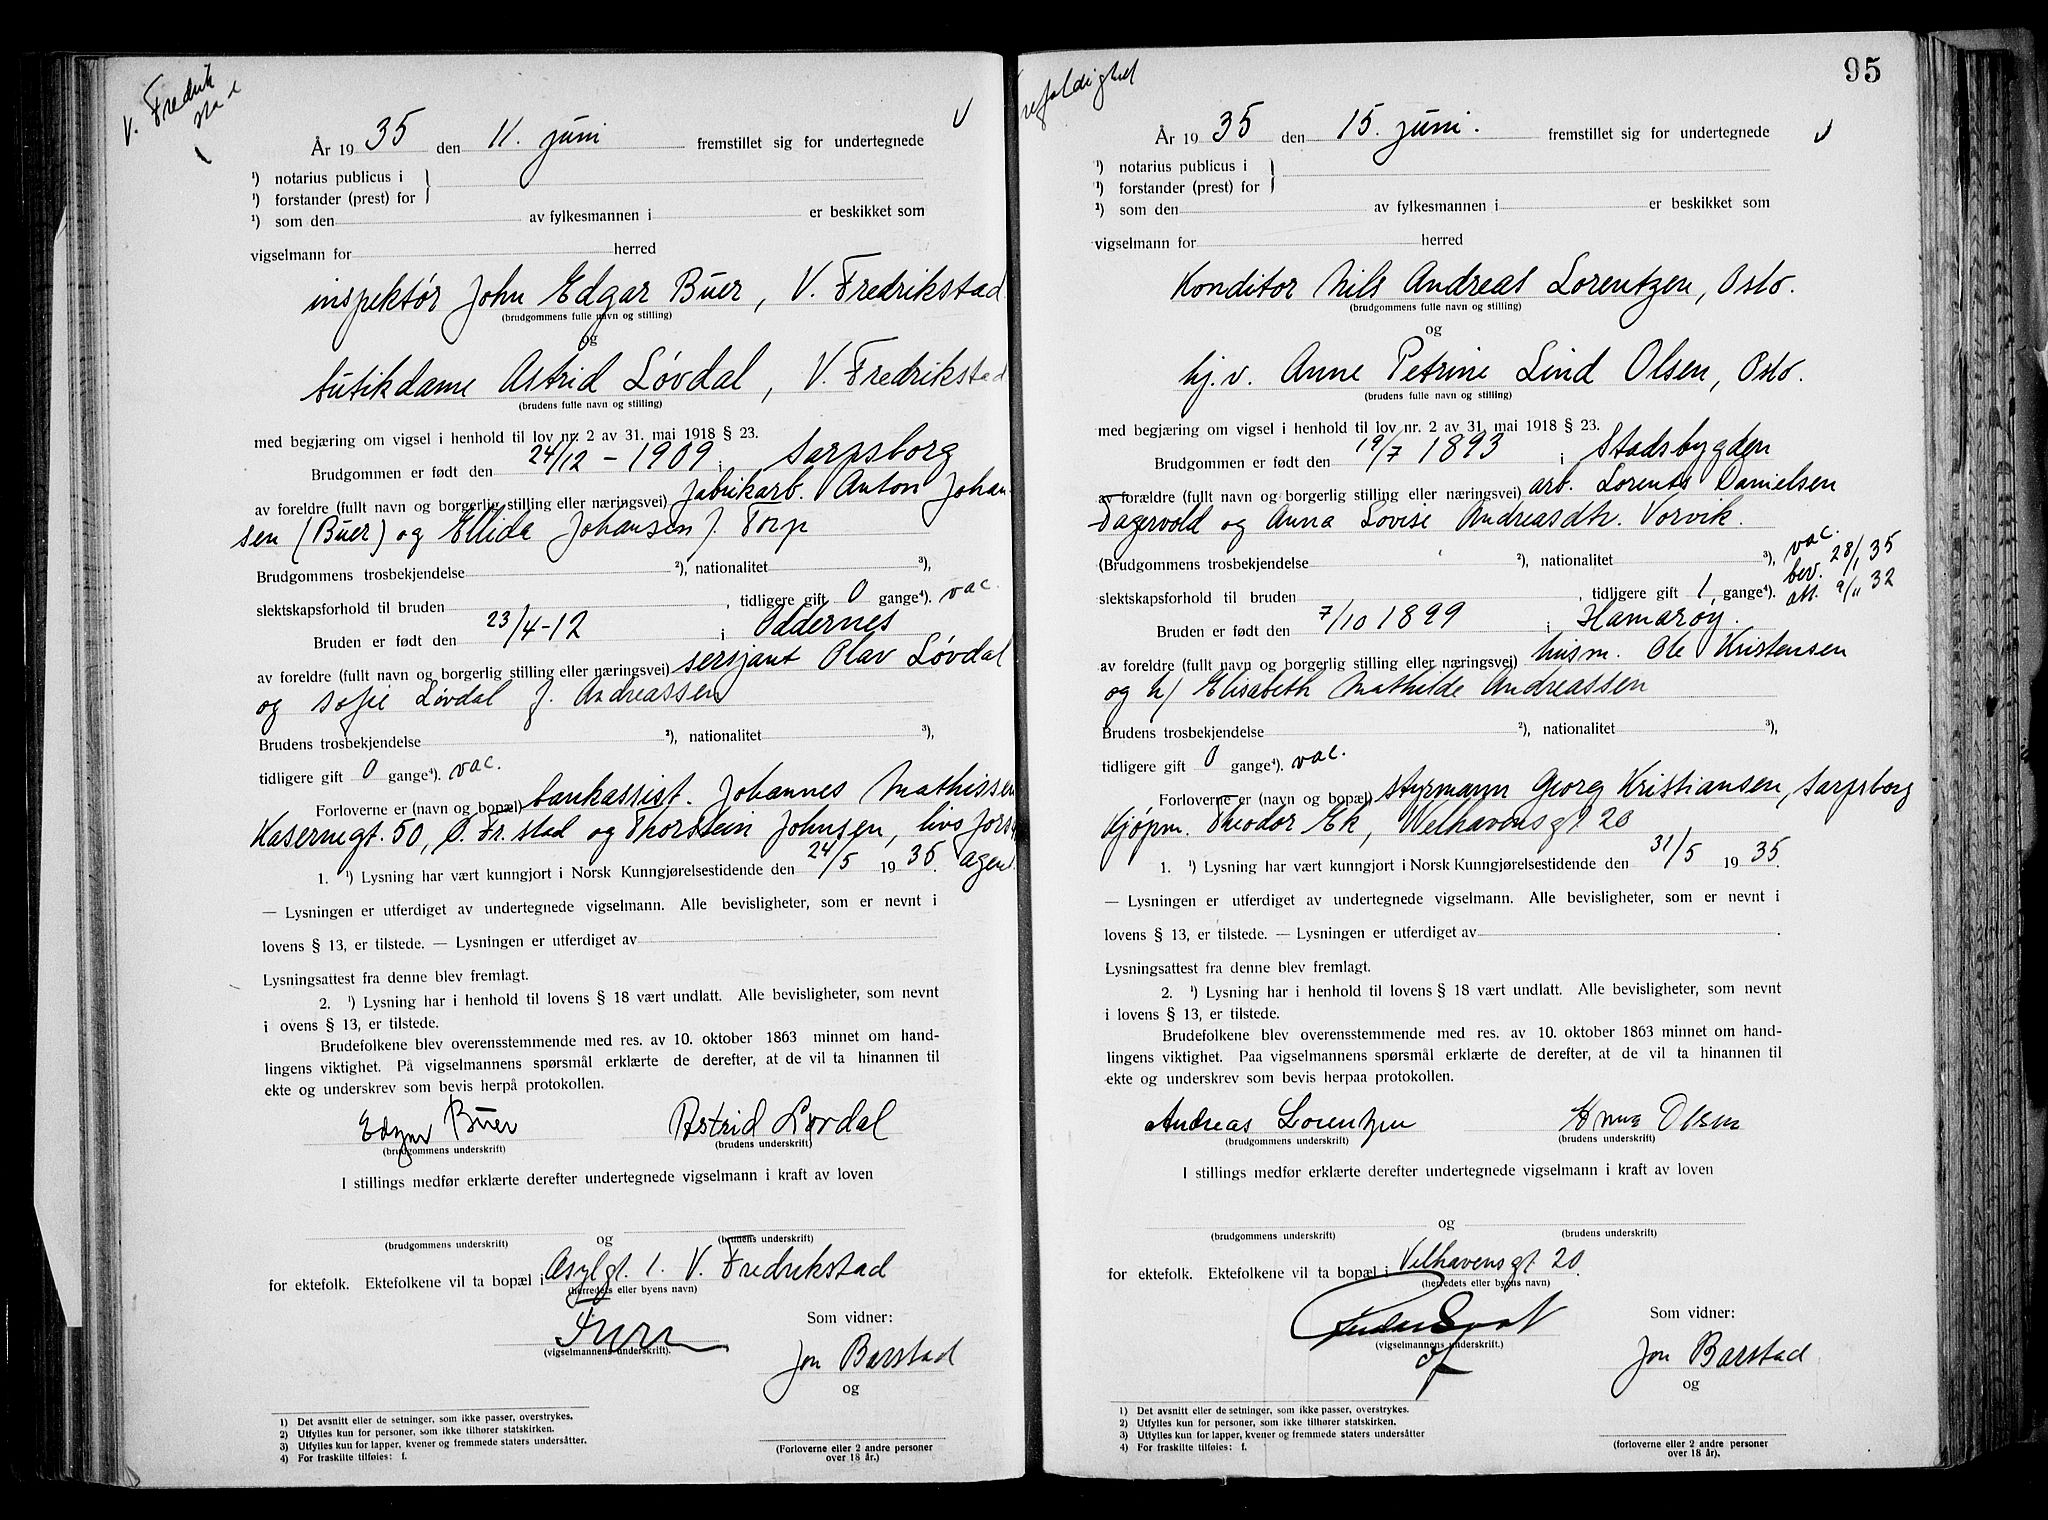 V. Fredrik
sta d
År 1935 den 11. juni fremstillet sig for undertegnede
¹) notarius publicus i
¹) forstander (prest) for
¹) som den av fylkesmannen i er beskikket som
vigselmann for herred
inspektør John Edgar Buer, V. Fredrikstad
(brudgommens fulle navn og stilling)
og
butikdame Astrid Løvdal, V. Fredrikstad
(brudens fulle navn og stilling)
med begjæring om vigsel i henhold til lov nr. 2 av 31. mai 1918 § 23.
Brudgommen er født den 24/12 - 1909 i Sarpsborg
av foreldre (fullt navn og borgerlig stilling eller næringsvei) fabrikarb. Anton Johan-
sen (Buer) og Ellida Johansen f. Torp
Brudgommens trosbekjendelse ²), nationalitet ³),
slektskapsforhold til bruden , tidligere gift 0 gange⁴). vac.
Bruden er født den 23/4-12 i Oddernes
av foreldre (fullt navn og borgerlig stilling eller næringsvei) sersjant Olav Løvdal
og Sofie Løvdal f. Andreassen
Brudens trosbekjendelse ²), nationalitet ³),
tidligere gift 0 gange⁴). vac.
Forloverne er (navn og bopæl) bankassist. Johannes Mathissen
Kasernegt. 50, Ø. Fr.stad og Thorstein Johnsen, livsfors.
1. ¹) Lysning har vært kunngjort i Norsk Kunngjørelsestidende den 24/5 1935. agen
— Lysningen er utferdiget av undertegnede vigselmann. Alle bevisligheter, som er nevnt i
lovens § 13, er tilstede. — Lysningen er utferdiget av
Lysningsattest fra denne blev fremlagt.
2. ¹) Lysning har i henhold til lovens § 18 vært undlatt. Alle bevisligheter, som nevnt
i ovens § 13, er tilstede.
Brudefolkene blev overensstemmende med res. av 10. oktober 1863 minnet om hand-
lingens viktighet. På vigselmannens spørsmål erklærte de derefter, at de vil ta hinannen til
ekte og underskrev som bevis herpå protokollen.
Edgar Buer Astrid Løvdal
(brudgommens underskrift) (brudens underskrift)
I stillings medfør erklærte derefter undertegnede vigselmann i kraft av loven
og
(brudgommens underskrift) (brudens underskrift)
for ektefolk. Ektefolkene vil ta bopæl i Asylgt. 1. V. Fredrikstad
(herredets eller byens navn)
Som vidner:
(vigselmannens underskrift).
Jon Barstad
og
1) Det avsnitt eller de setninger, som ikke passer, overstrykes.
2) Utfylles kun for personer, som ikke tilhører statskirken.
3) Utfylles kun for lapper, kvener og fremmede staters undersåtter.
4) For fraskilte tilføies: f.
(Forloverne eller 2 andre personer
over 18 år.)
95
refoldighet
År 1935 den 15. juni. fremstillet sig for undertegnede
¹) notarius publicus i
¹) forstander (prest) for
²) som den av fylkesmannen i er beskikket som
vigselmann for herred
Konditor Nils Andreas Lorentzen, Oslo.
(brudgommens fulle navn og stilling)
og
hj.v. Anne Petrine Lind Olsen, Oslo.
(brudens fulle navn og stilling)
med begjæring om vigsel i henhold til lov nr. 2 av 31. mai 1918 § 23.
Brudgommen er født den 19/7 1893 i Stadsbygden
av foreldre (fullt navn og borgerlig stilling eller næringsvei) arb. Lorents Danielsen
Fagervold og Anna Lovise Andreasdtr. Vorvik.
(Brudgommens trosbekjendelse ²), nationalitet ³), vac.
bev. 28/1 35
slektskapsforhold til bruden , tidligere gift 1 gange⁴). att. 9/11 32
Bruden er født den 7/10 1899 i Hamarøy.
av foreldre (fullt navn og borgerlig stilling eller næringsvei) husm. Ole Kristensen
og h/ Elisabeth Mathilde Andreassen
Brudens trosbekjendelse ²), nationalitet ³),
tidligere gift 0 gange⁴). vac.
Forloverne er (navn og bopæl) styrmann Georg Kristiansen, Sarpsborg
Kjøpm. Theodor Ek, Welhavensgt. 20
1. ¹) Lysning har vært kunngjort i Norsk Kunngjørelsestidende den 31/5 1935.
— Lysningen er utferdiget av undertegnede vigselmann. Alle bevisligheter, som er nevnt i
lovens § 13, er tilstede. — Lysningen er utferdiget av
Lysningsattest fra denne blev fremlagt.
2. ¹) Lysning har i henhold til lovens § 18 vært undlatt. Alle bevisligheter, som nevnt
i lovens § 13, er tilstede.
Brudefolkene blev overensstemmende med res. av 10. oktober 1863 minnet om hand-
lingens viktighet. Paa vigselmannens spørsmål erklærte de derefter, at de vil ta hinannen til
ekte og underskrev som bevis herpaa protokollen.
Andreas Lorentzen Anna Olsen
(brudgommens underskrift) (brudens underskrift)
I stillings medfør erklærte derefter undertegnede vigselmann i kraft av loven
og
(brudgommens underskrift) (brudens underskrift)
for ektefolk. Ektefolkene vil ta bopæl i Velhavensgt. 20.
(herredets eller byens navn)
Som vidner:
(vigselmannens underskrift).
Jon Barstad
og
1) Det avsnitt eller de setninger, som ikke passer, overstrykes.
2) Utfylles kun for personer, som ikke tilhører statskirken.
3) Utfylles kun for lapper, kvener og fremmede staters undersåtter
4) For fraskilte tilføies: f.
(forloverne eller 2 andre personer
over 18 år).